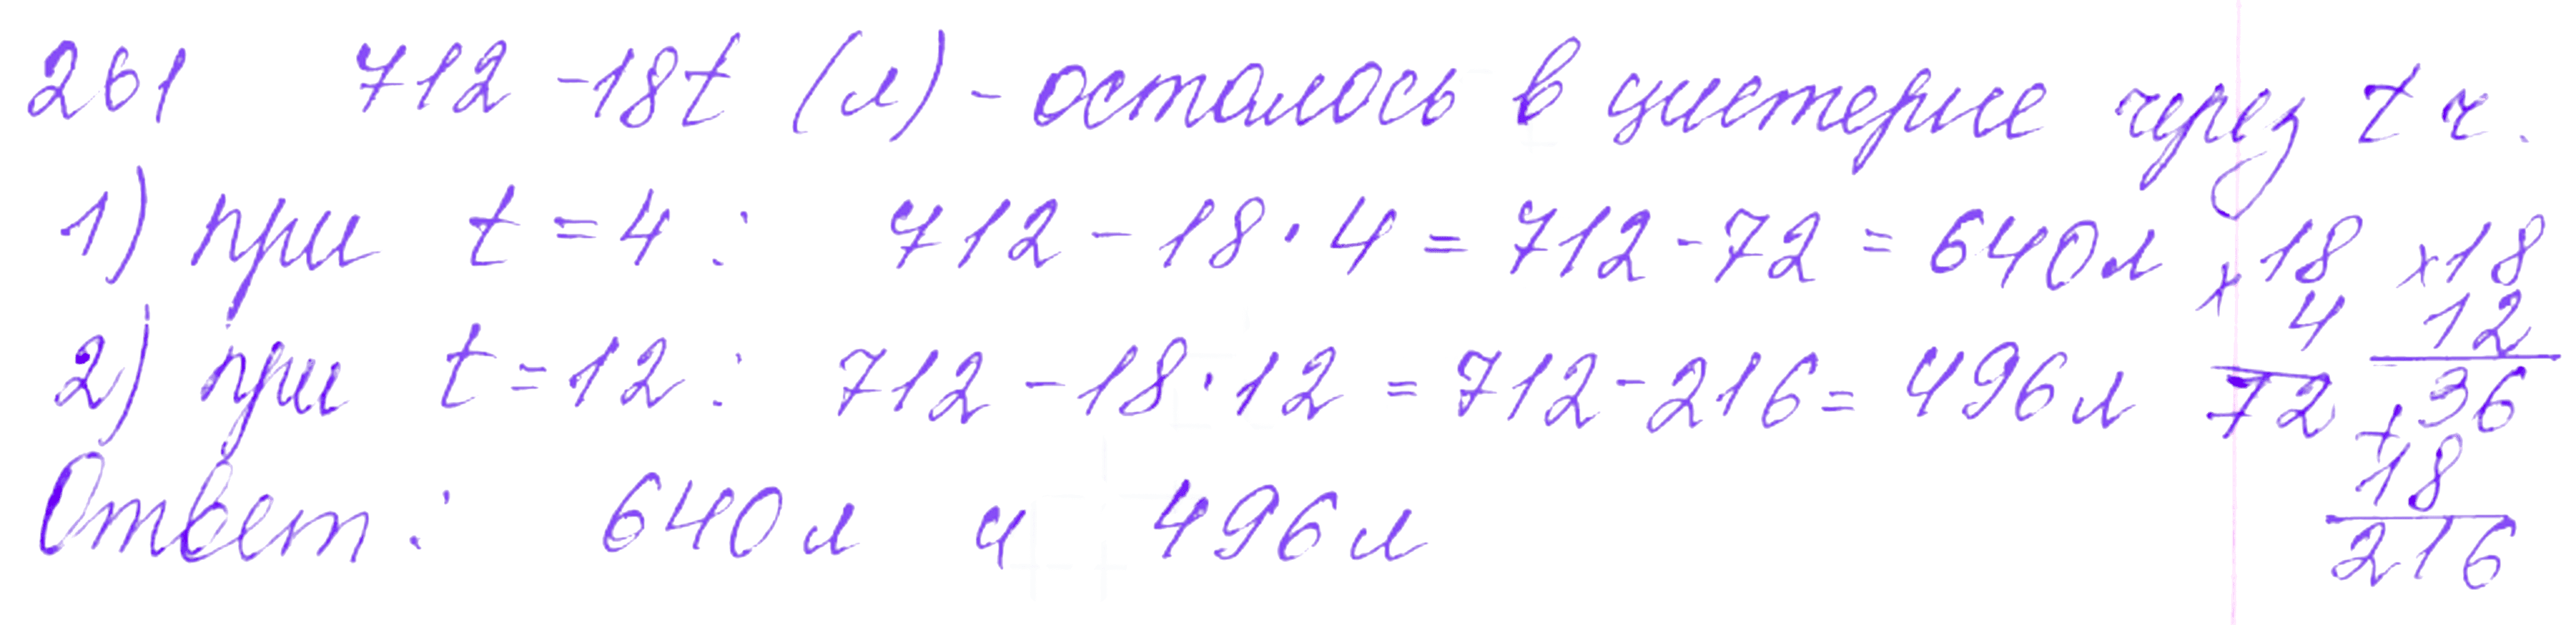 261 712 - 18t (л) - осталось в цистерне через t ч.
1) при t = 4 : 712 - 18 · 4 = 712 - 72 = 640 л
2) при t = 12 : 712 - 18 · 12 = 712 - 216 = 496 л
Ответ : 640 л и 496 л
× 18
4
72
× 18
12
+ 36
18
216